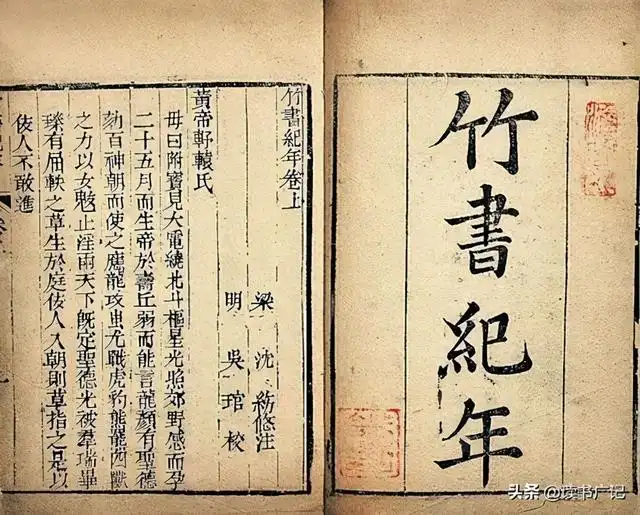 竹書紀年
竹書紀年卷上
梁 沈 約附注
明 吳 琯 校
黃帝軒轅氏
母曰附寶見大電繞北斗樞星光照郊野感而孕
二十五月而生帝於壽丘弱而能言龍顏有聖德
劾百神朝而使之應龍攻蚩尤戰虎豹熊羆四獸
之力以女魃止淫雨天下既定聖德光被羣瑞畢
臻有屈軼之草生於庭佞人入朝則草指之是以
佞人不敢進
头条 @读书广记